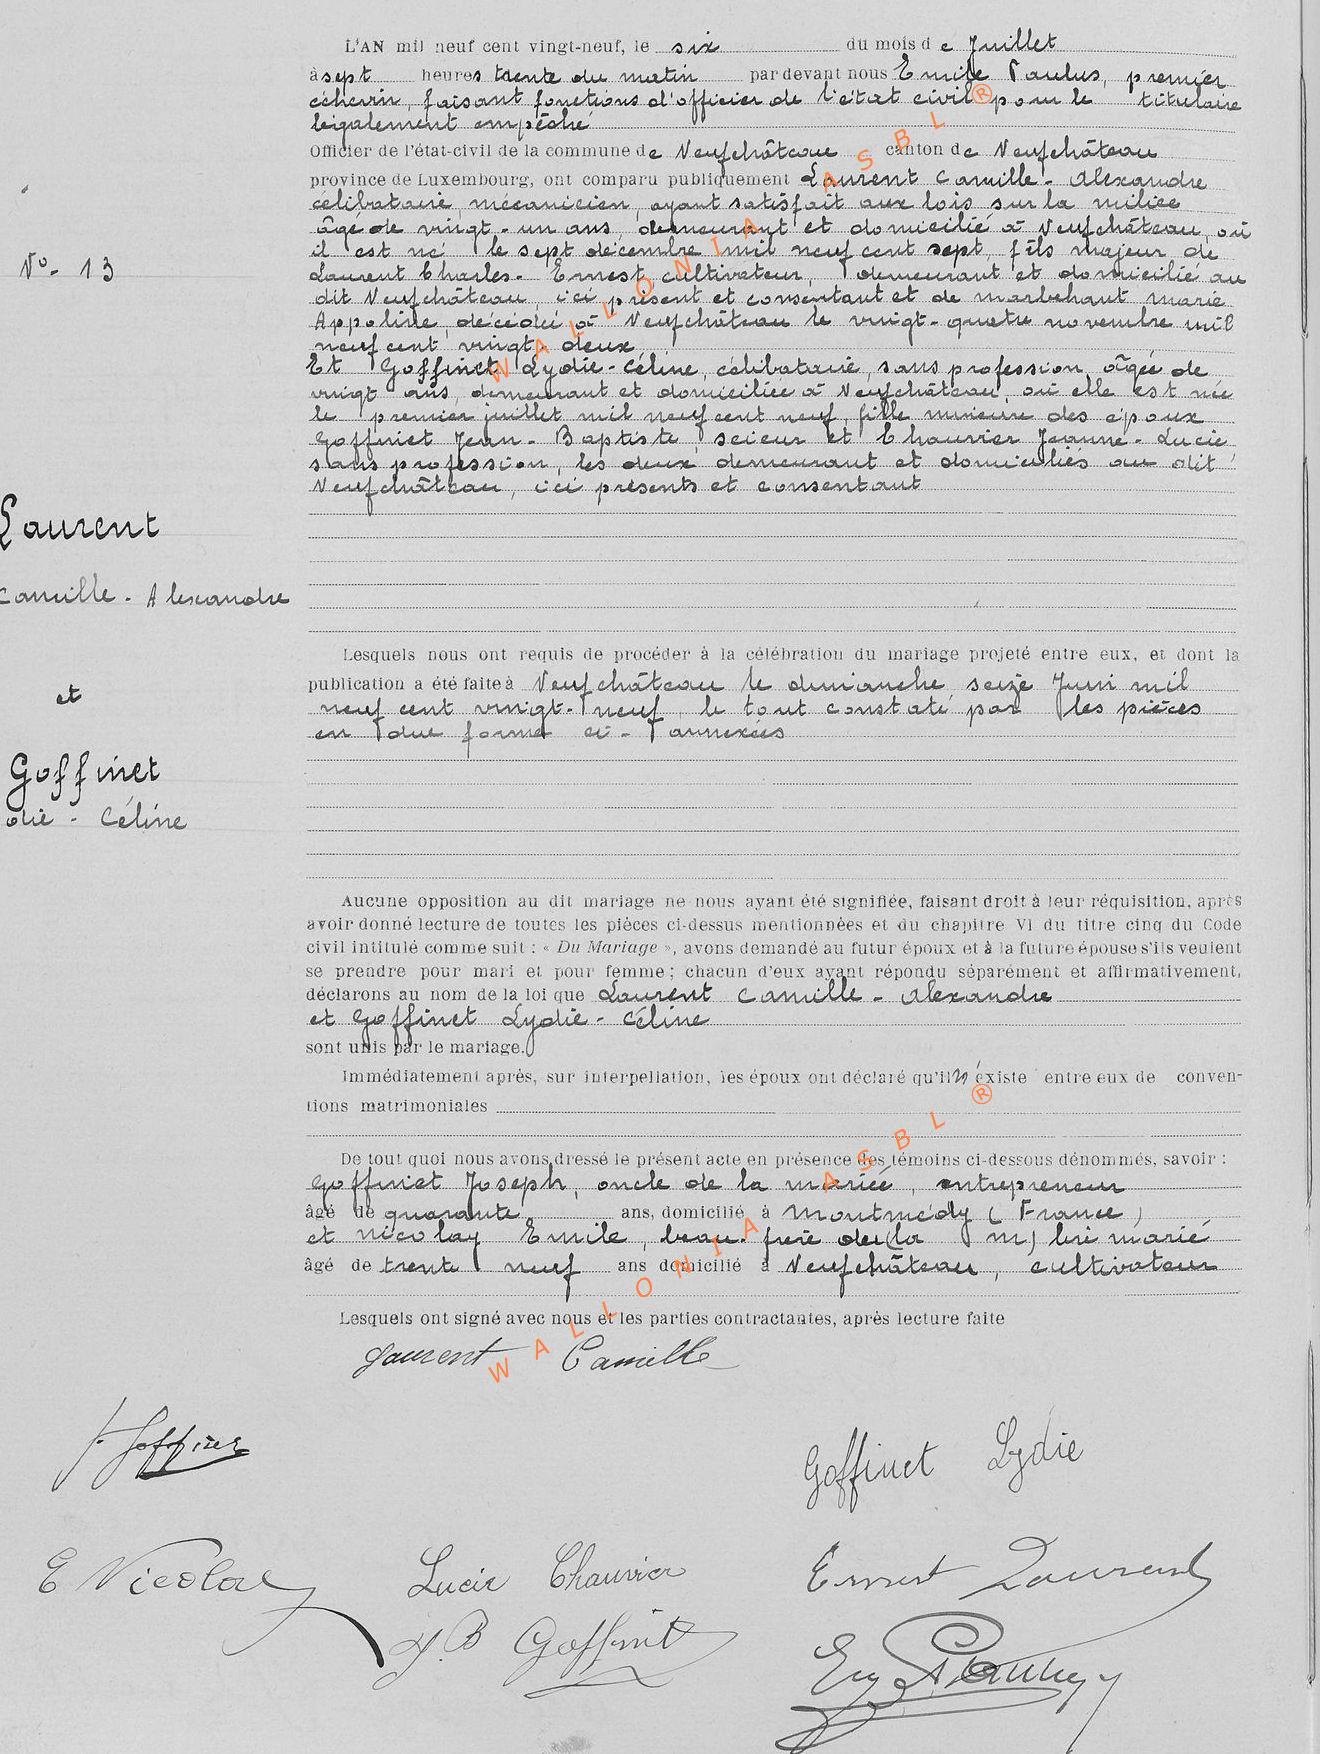 L'AN mil neuf cent vingt-neuf, le six du mois de Juillet
à sept heures trente du matin par devant nous Emile Paulus, premier
échevin, faisant fonctions d'officier de l'état civil pour le titulaire
légalement empêché
Officier de l'état-civil de la commune de Neufchâteau canton de Neufchâteau
province de Luxembourg, ont comparu publiquement Laurent Camille-Alexandre
célibataire, mécanicien, ayant satisfait aux lois sur la milice
âgé de vingt-un ans, demeurant et domicilié à Neufchâteau, où
il est né le sept décembre mil neuf cent sept, fils majeur de
N° 13
Laurent Charles-Ernest, cultivateur, demeurant et domicilié au
dit Neufchâteau, ici présent et consentant et de Marbehant Marie
Appoline, décédée à Neufchâteau le vingt-quatre novembre mil
neuf cent vingt-deux
Et Goffinet Lydie-Céline, célibataire, sans profession, âgée de
vingt ans, demeurant et domiciliée à Neufchâteau, où elle est née
le premier juillet mil neuf cent neuf, fille mineure des époux
Goffinet Jean-Baptiste, scieur et Chauvier Jeanne-Lucie
sans profession, les deux demeurant et domiciliés au dit
Neufchâteau, ici présents et consentant
Laurent
Camille-Alexandre
et
Goffinet
die-Céline
Lesquels nous ont requis de procéder à la célébration du mariage projeté entre eux, et dont la
publication a été faite à Neufchâteau le dimanche seize Juin mil
neuf cent vingt-neuf, le tout constaté par les pièces
en due forme ci-annexées
Aucune opposition au dit mariage ne nous ayant été signifiée, faisant droit à leur réquisition, après
avoir donné lecture de toutes les pièces ci-dessus mentionnées et du chapitre VI du titre cinq du Code
civil intitulé comme suit : « Du Mariage », avons demandé au futur époux et à la future épouse s'ils veulent
se prendre pour mari et pour femme ; chacun d'eux ayant répondu séparément et affirmativement,
déclarons au nom de la loi que Laurent Camille-Alexandre
et Goffinet Lydie-Céline
sont unis par le mariage.
Immédiatement après, sur interpellation, les époux ont déclaré qu'il n'existe entre eux de conven-
tions matrimoniales
De tout quoi nous avons dressé le présent acte en présence des témoins ci-dessous dénommés, savoir :
Goffinet Joseph, oncle de la mariée, entrepreneur
âgé de quarante ans, domicilié à Montmédy (France)
et Nicolay Emile, beau-frère du (la m) le marié
âgé de trente neuf ans domicilié à Neufchâteau, cultivateur
Lesquels ont signé avec nous et les parties contractantes, après lecture faite
Laurent Camille
J. Goffinet
Goffinet Lydie
E Nicolay
Lucie Chauvier
Ernest Laurent
J. B Goffinet
WALLONIA ASBL ®
WALLONIA ASBL ®